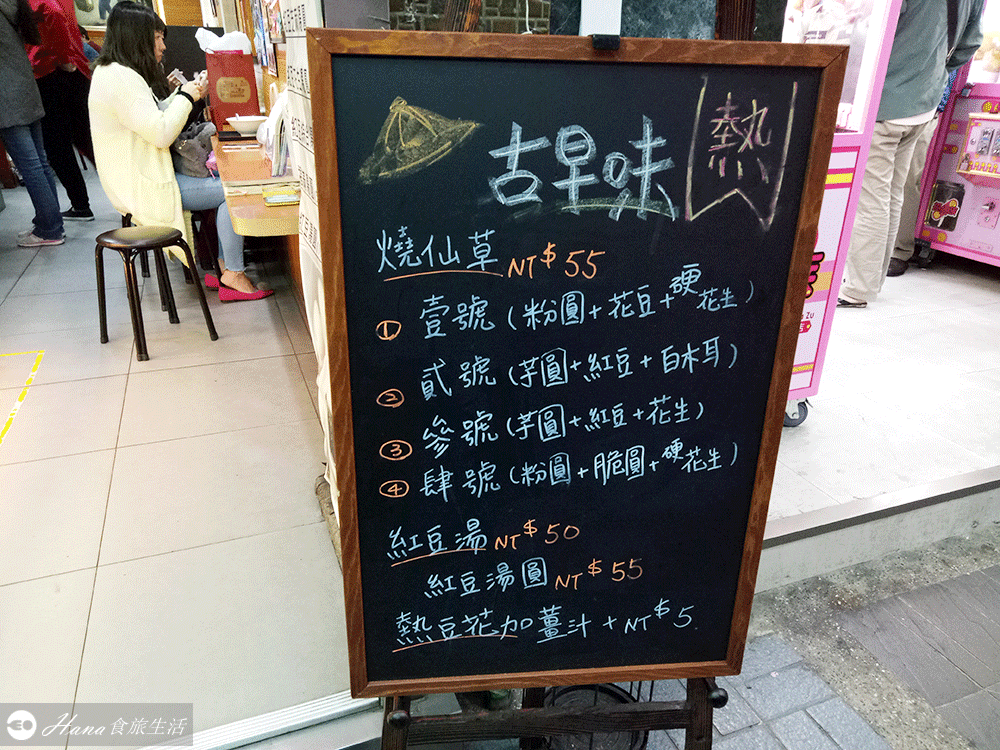 古早味 熱
燒仙草 NT$55
① 壹號 (粉圓+花豆+硬花生)
② 貳號 (芋圓+紅豆+白木耳)
③ 參號 (芋圓+紅豆+花生)
④ 肆號 (粉圓+脆圓+硬花生)
紅豆湯 NT$50
紅豆湯圓 NT$55
熱豆花加薑汁 + NT$5
Hana 食旅生活